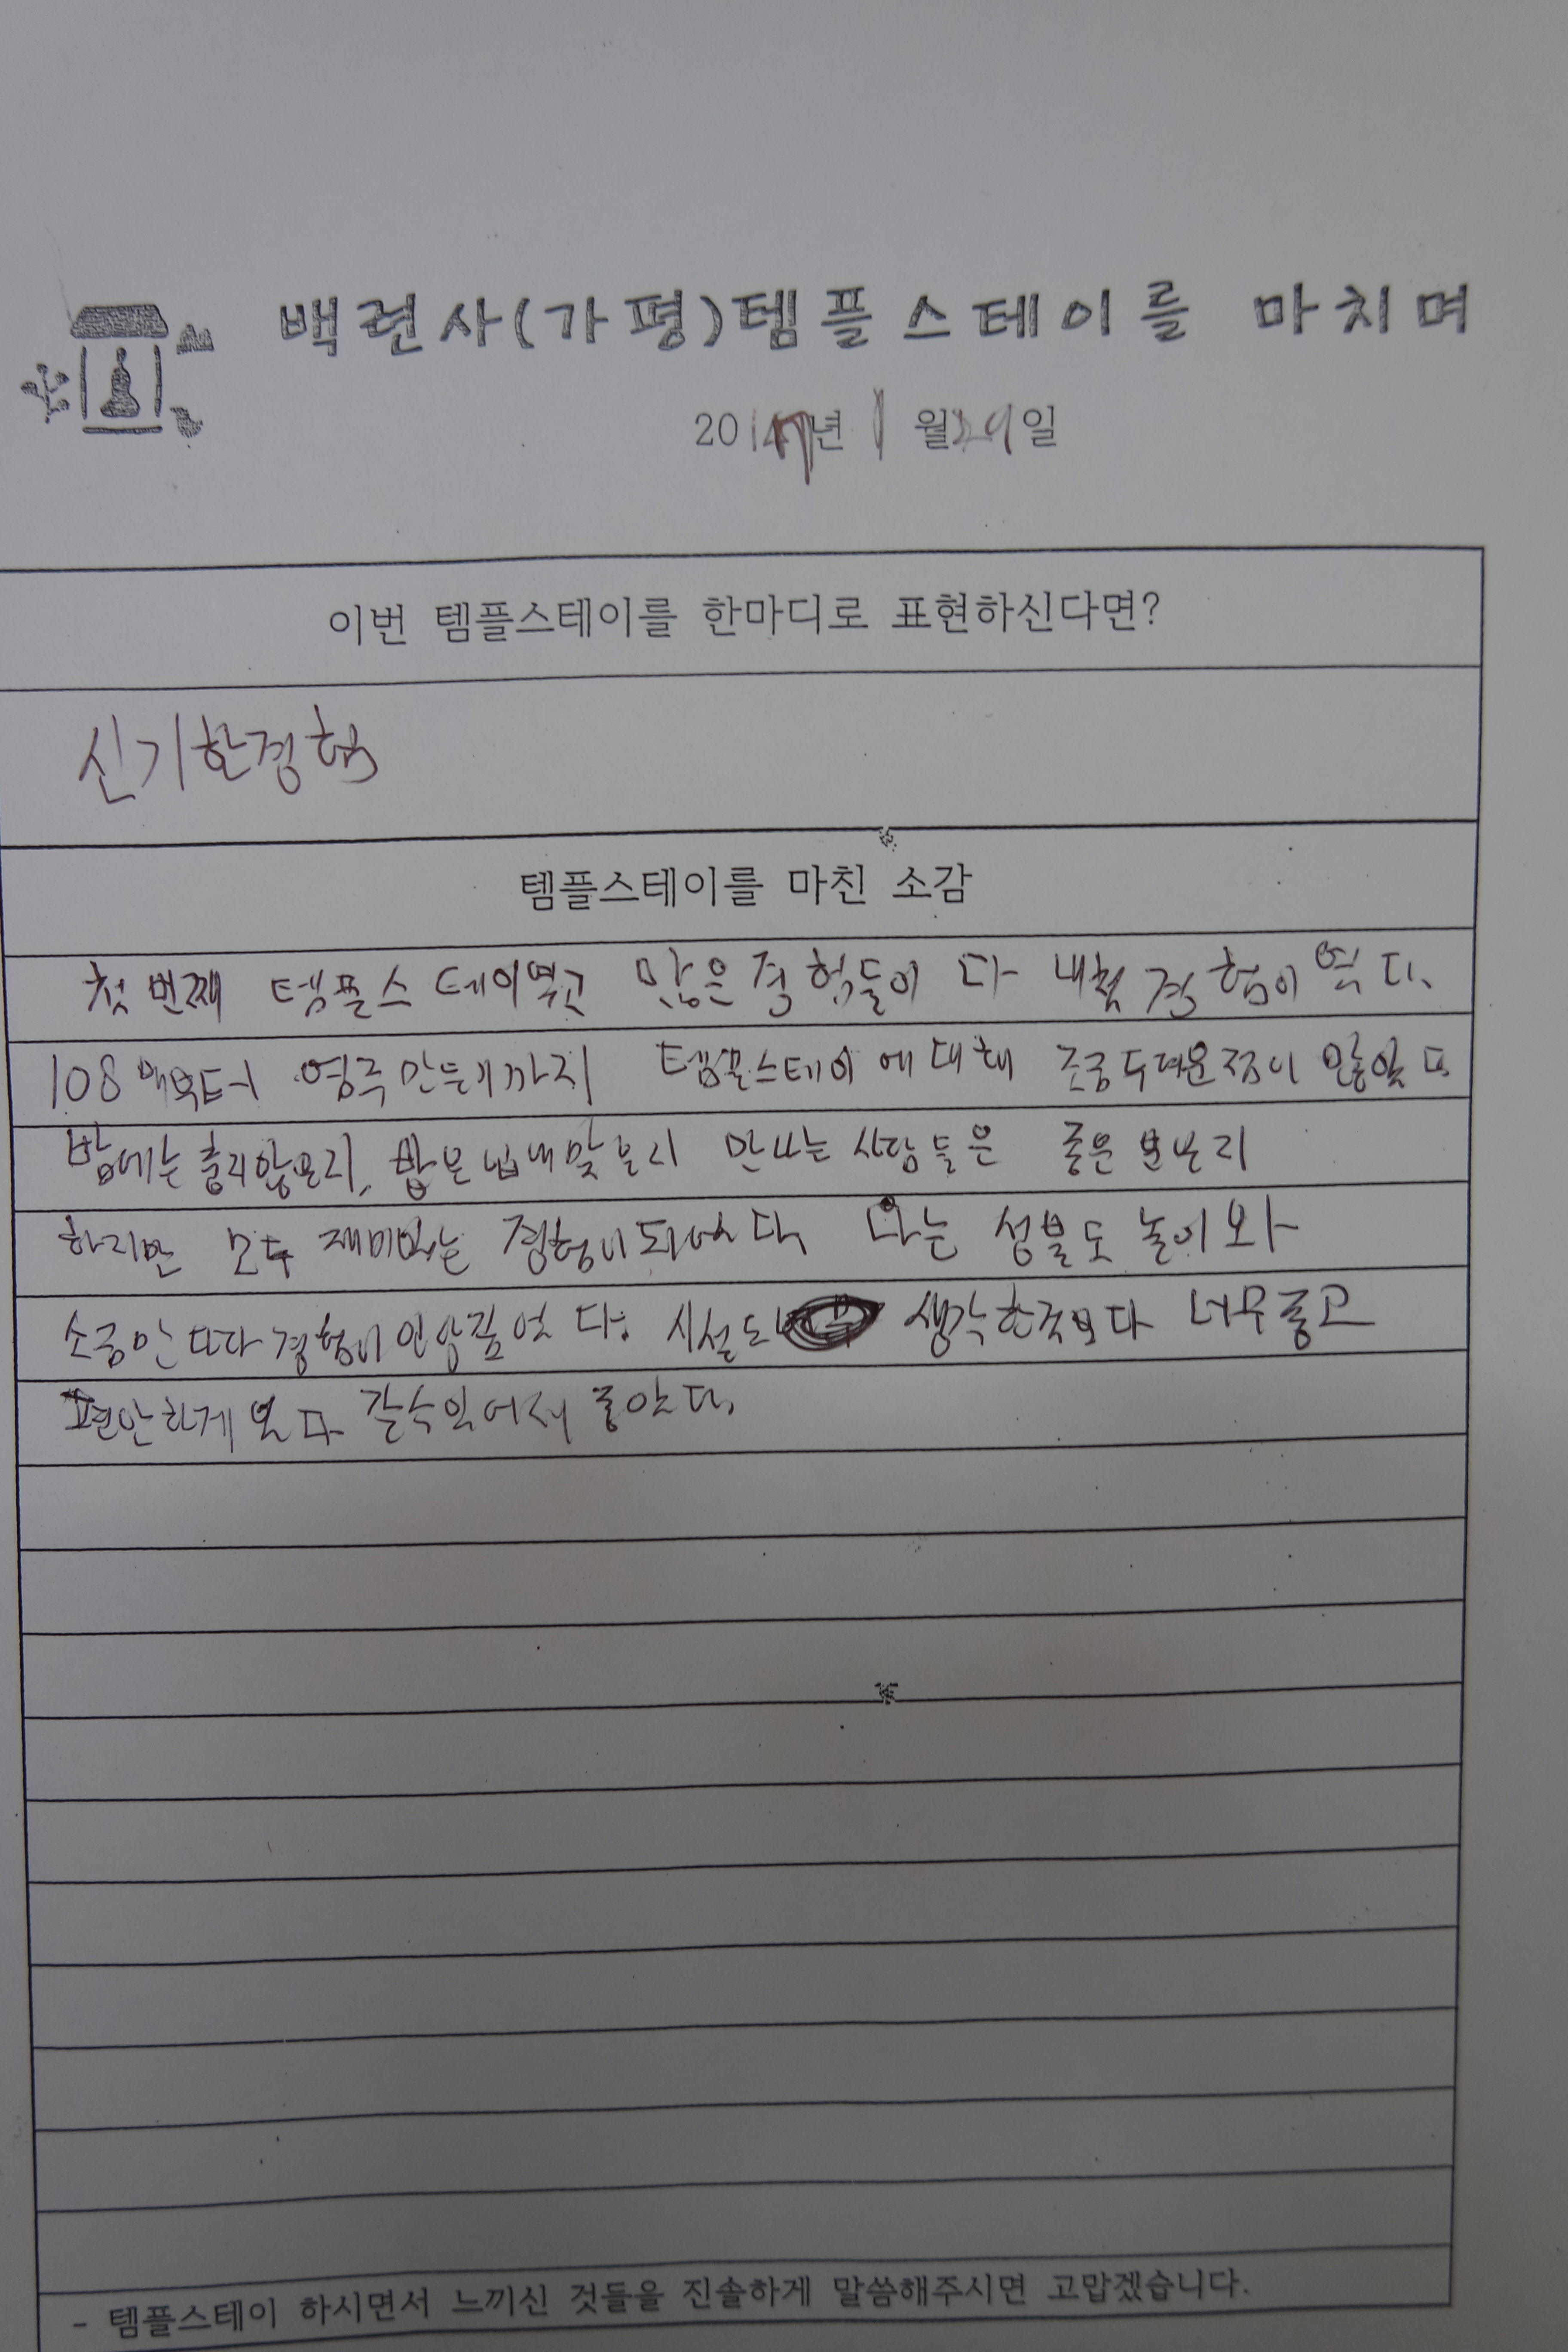 백련사(가평)템플스테이를 마치며
2017년 1월29일
이번 템플스테이를 한마디로 표현하신다면?
신기한경험
템플스테이를 마친 소감
첫번째 템플스테이였고 많은 경험들이 다 내첫 경험이였다.
108배부터 염주만들기까지 템플스테이에대해 조금두려운점이 많았고
밤에는 춥지않을지, 밥은 맛날지 만나는 사람들은 좋은분일지
하지만 모두 재미있는 경험이되었다. 나는 성불도 놀이와
소금만다라경험이 인상깊었다. 시설도 생각한것보다 너무좋고
편안하게 있다 갈수있어서 좋았다.
- 템플스테이 하시면서 느끼신 것들을 진솔하게 말씀해주시면 고맙겠습니다.